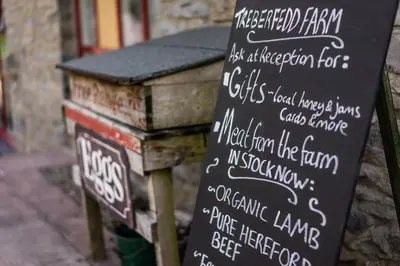 TREBERFEDD FARM
Ask at Reception for:
Gifts - local honey & jams
Cards & more
Meat from the farm
IN STOCK NOW:
ORGANIC LAMB
PURE HEREFORD
BEEF
Free Range
Eggs